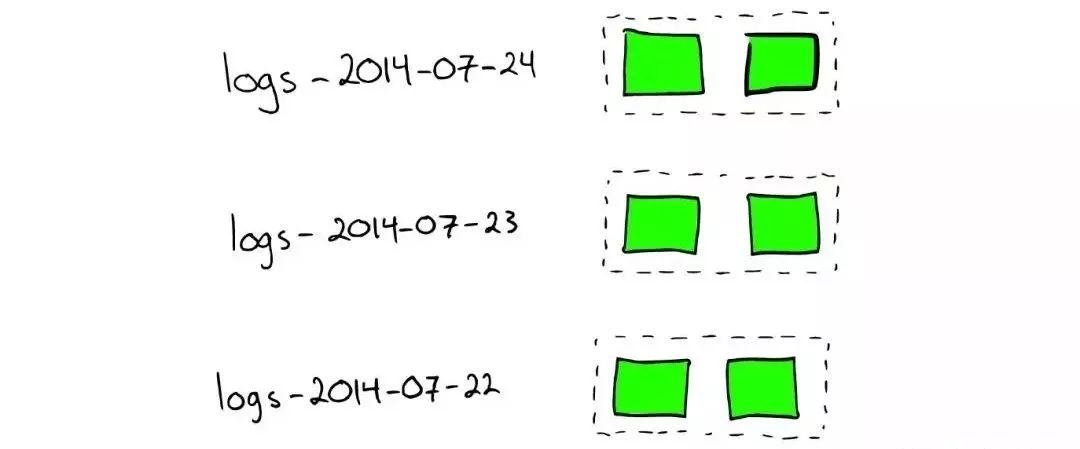 logs-2014-07-24
logs-2014-07-23
logs-2014-07-22